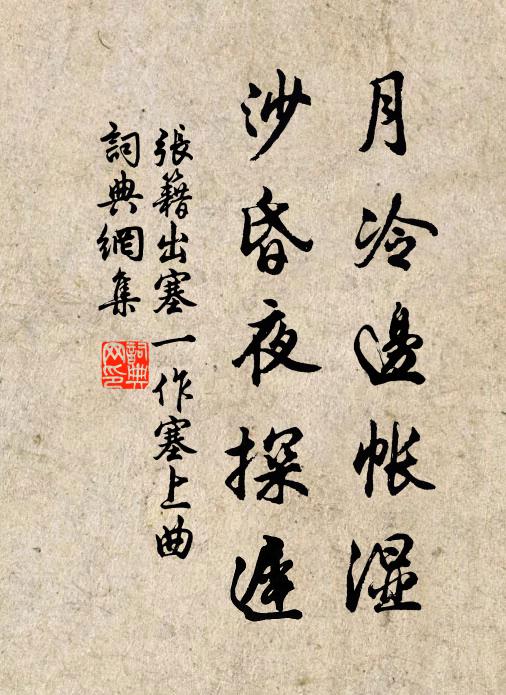 月冷邊帳湿
沙昏夜探遲
張籍出塞一作塞上曲
詞典網集
詞典网印